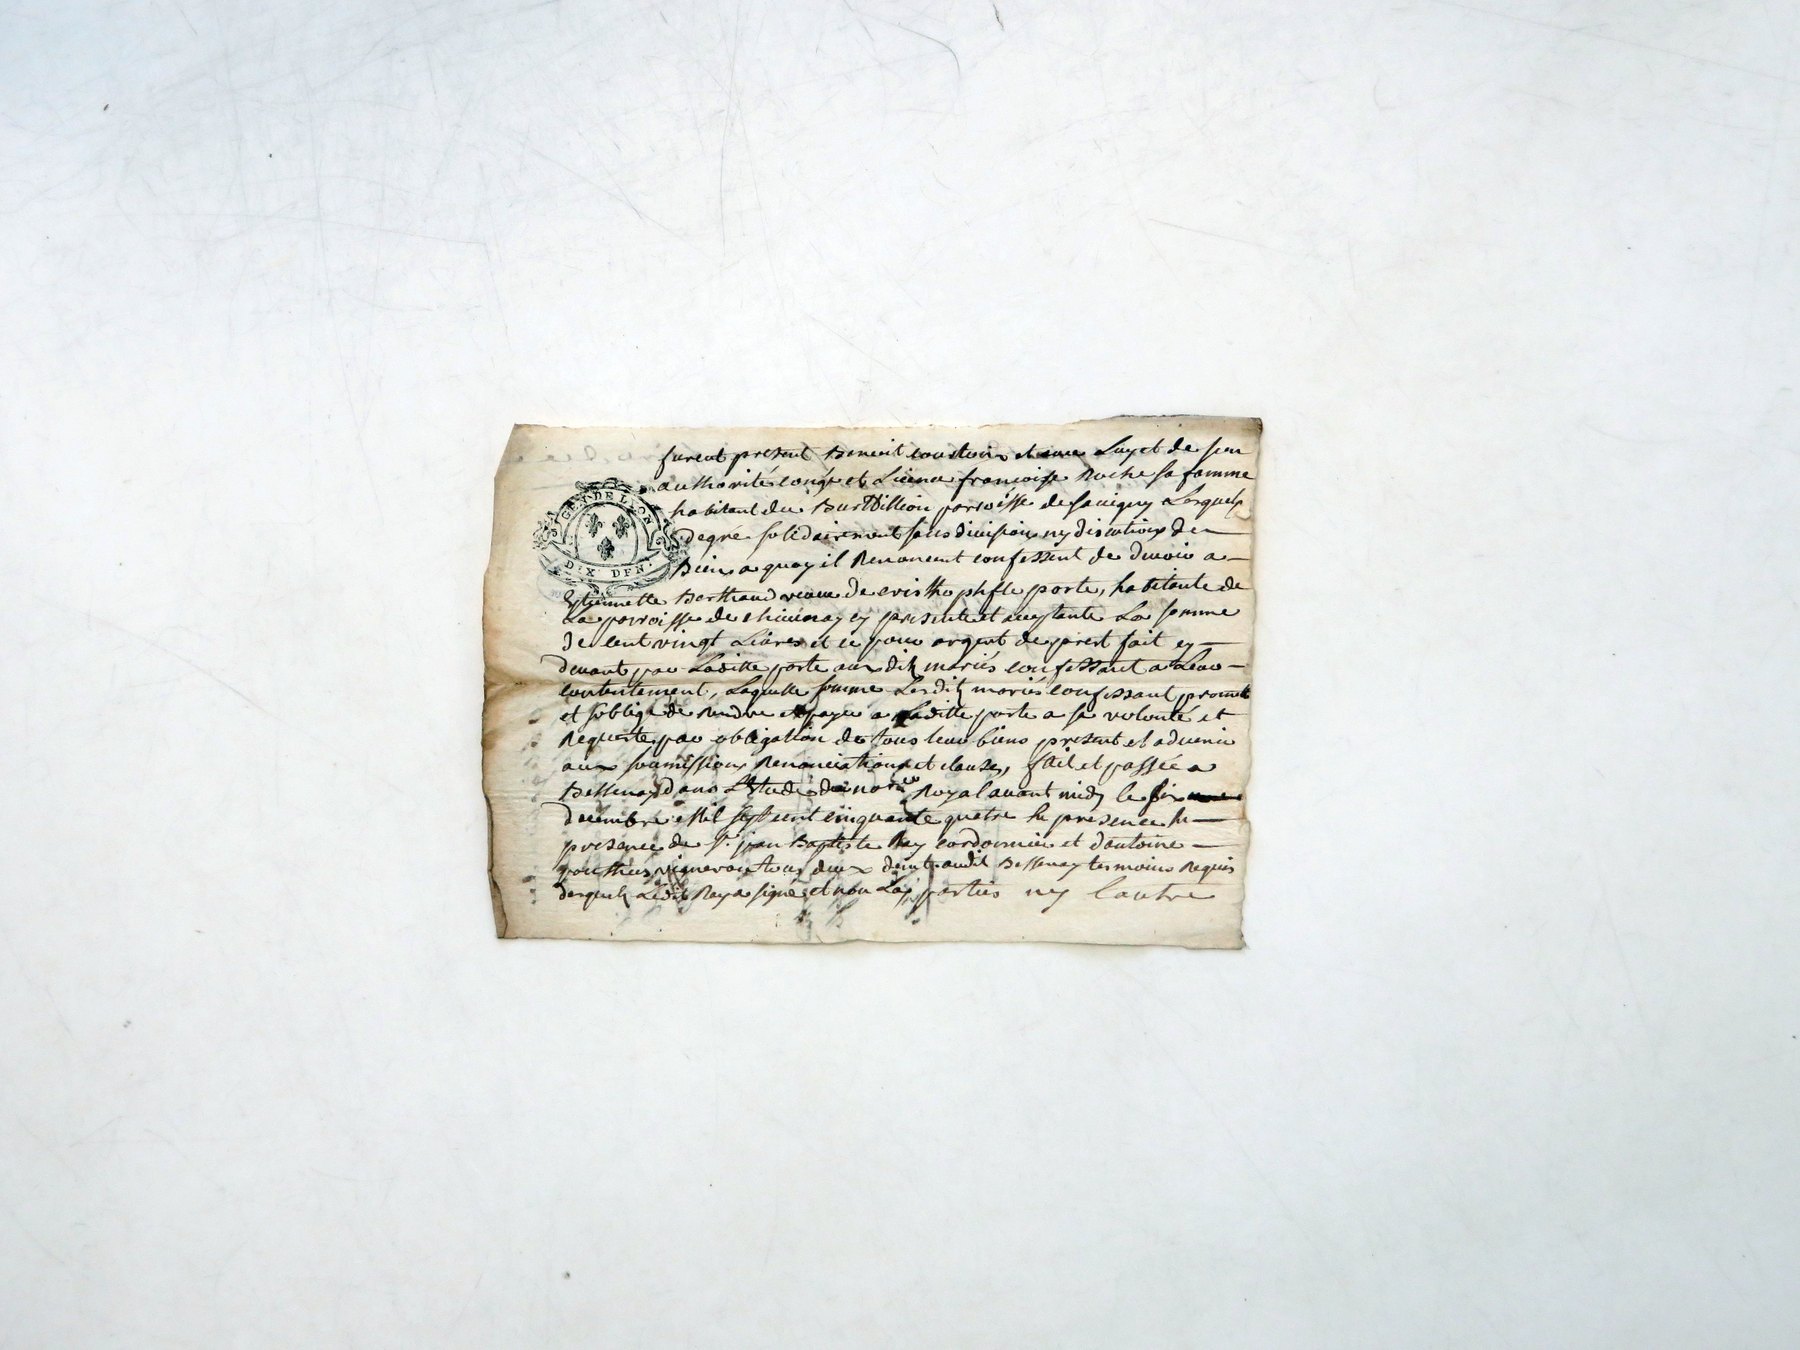 furent present Benoit coustoin et avec Luy et de son
GEN. DE LYON
DIX DEN.
authorité congé et Licence francoise Roche sa famme
habitant du Bur Willion parroisse de Savigny Lesquels
degré solidairement sans division ny discution de
Bien a quoy il Renoncent confessent de devoir a
Estiennette Berthaud veuve de cristhophfle porte, habitante de
La parroisse de chivinay cy presente et aceptante La somme
de cent vingt Livres et ce pour argent de prest fait cy
devant par Laditte porte aux dits mariés confessant a Leur
contentement, Laquelle somme Lesdits mariés confessant promett
et soblige de Rendre et payer a Laditte porte a sa volonté et
Requeste par obligation de tous leur biens present et advenir
aux soumissions Renonciations et clauses, fait et passée a
Bessenay dans L'Etude du nore Royal avant midy le six
decembre Mil sept cent cinquante quatre En presence En
presence de Sr. jean Baptiste Rey cordonnier et d'antoine
vigneron tous deux demt audit Bessenay temoins Requis
desquels Ledit Rey a signé et non Les parties ny lautre